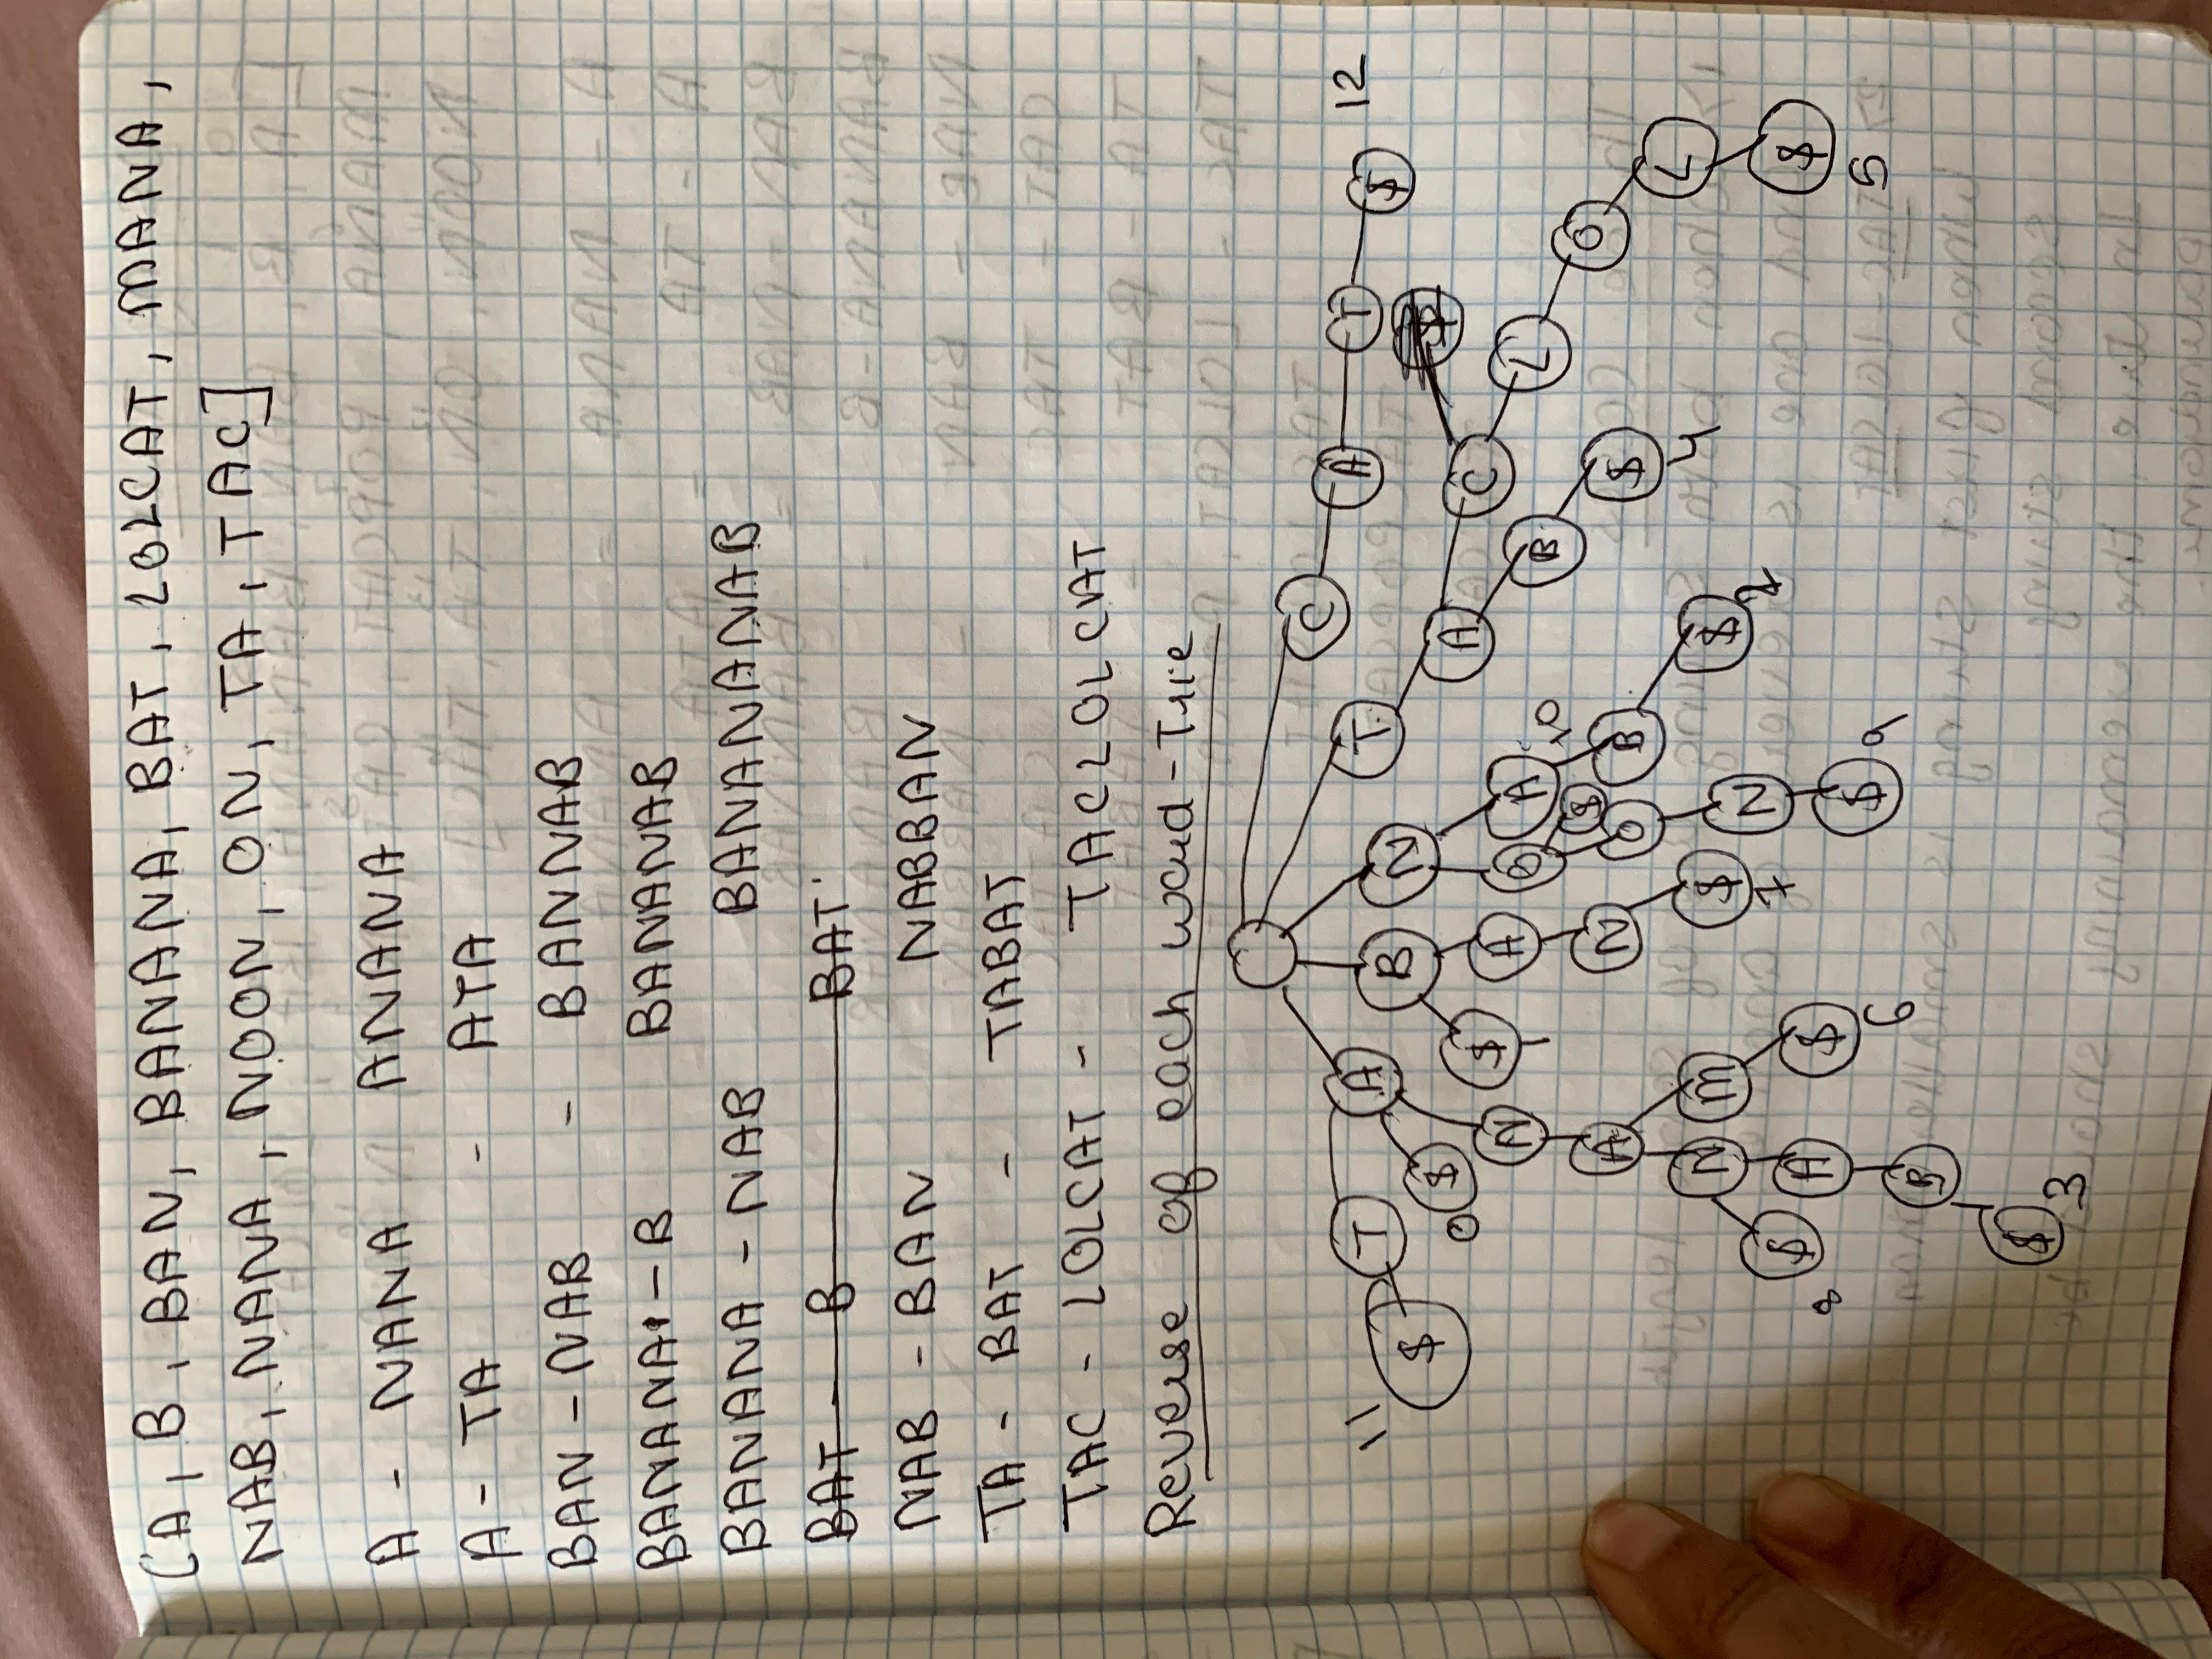 [A, B, BAN, BANANA, BAT, LOLCAT, MANA,
NAB, NANA, NOON, ON, TA, TAC]
A - NANA ANANA
A - TA - ATA
BAN - NAB - BANNAB
BANANA - B BANANAB
BANANA - NAB BANANANAB
BAT - B BAT
NAB - BAN NABBAN
TA - BAT - TABAT
TAC - LOLCAT - TACLOLCAT
Reverse of each word - Trie
C A T $ 12
11 $ T A B N T
0 $ $ 1 A C
N A O A 10 B L
A N $ O B $ 4 O
N M $ 7 N $ 2 L
8 $ A $ 6 $ 9 $ 5
B
$ 3